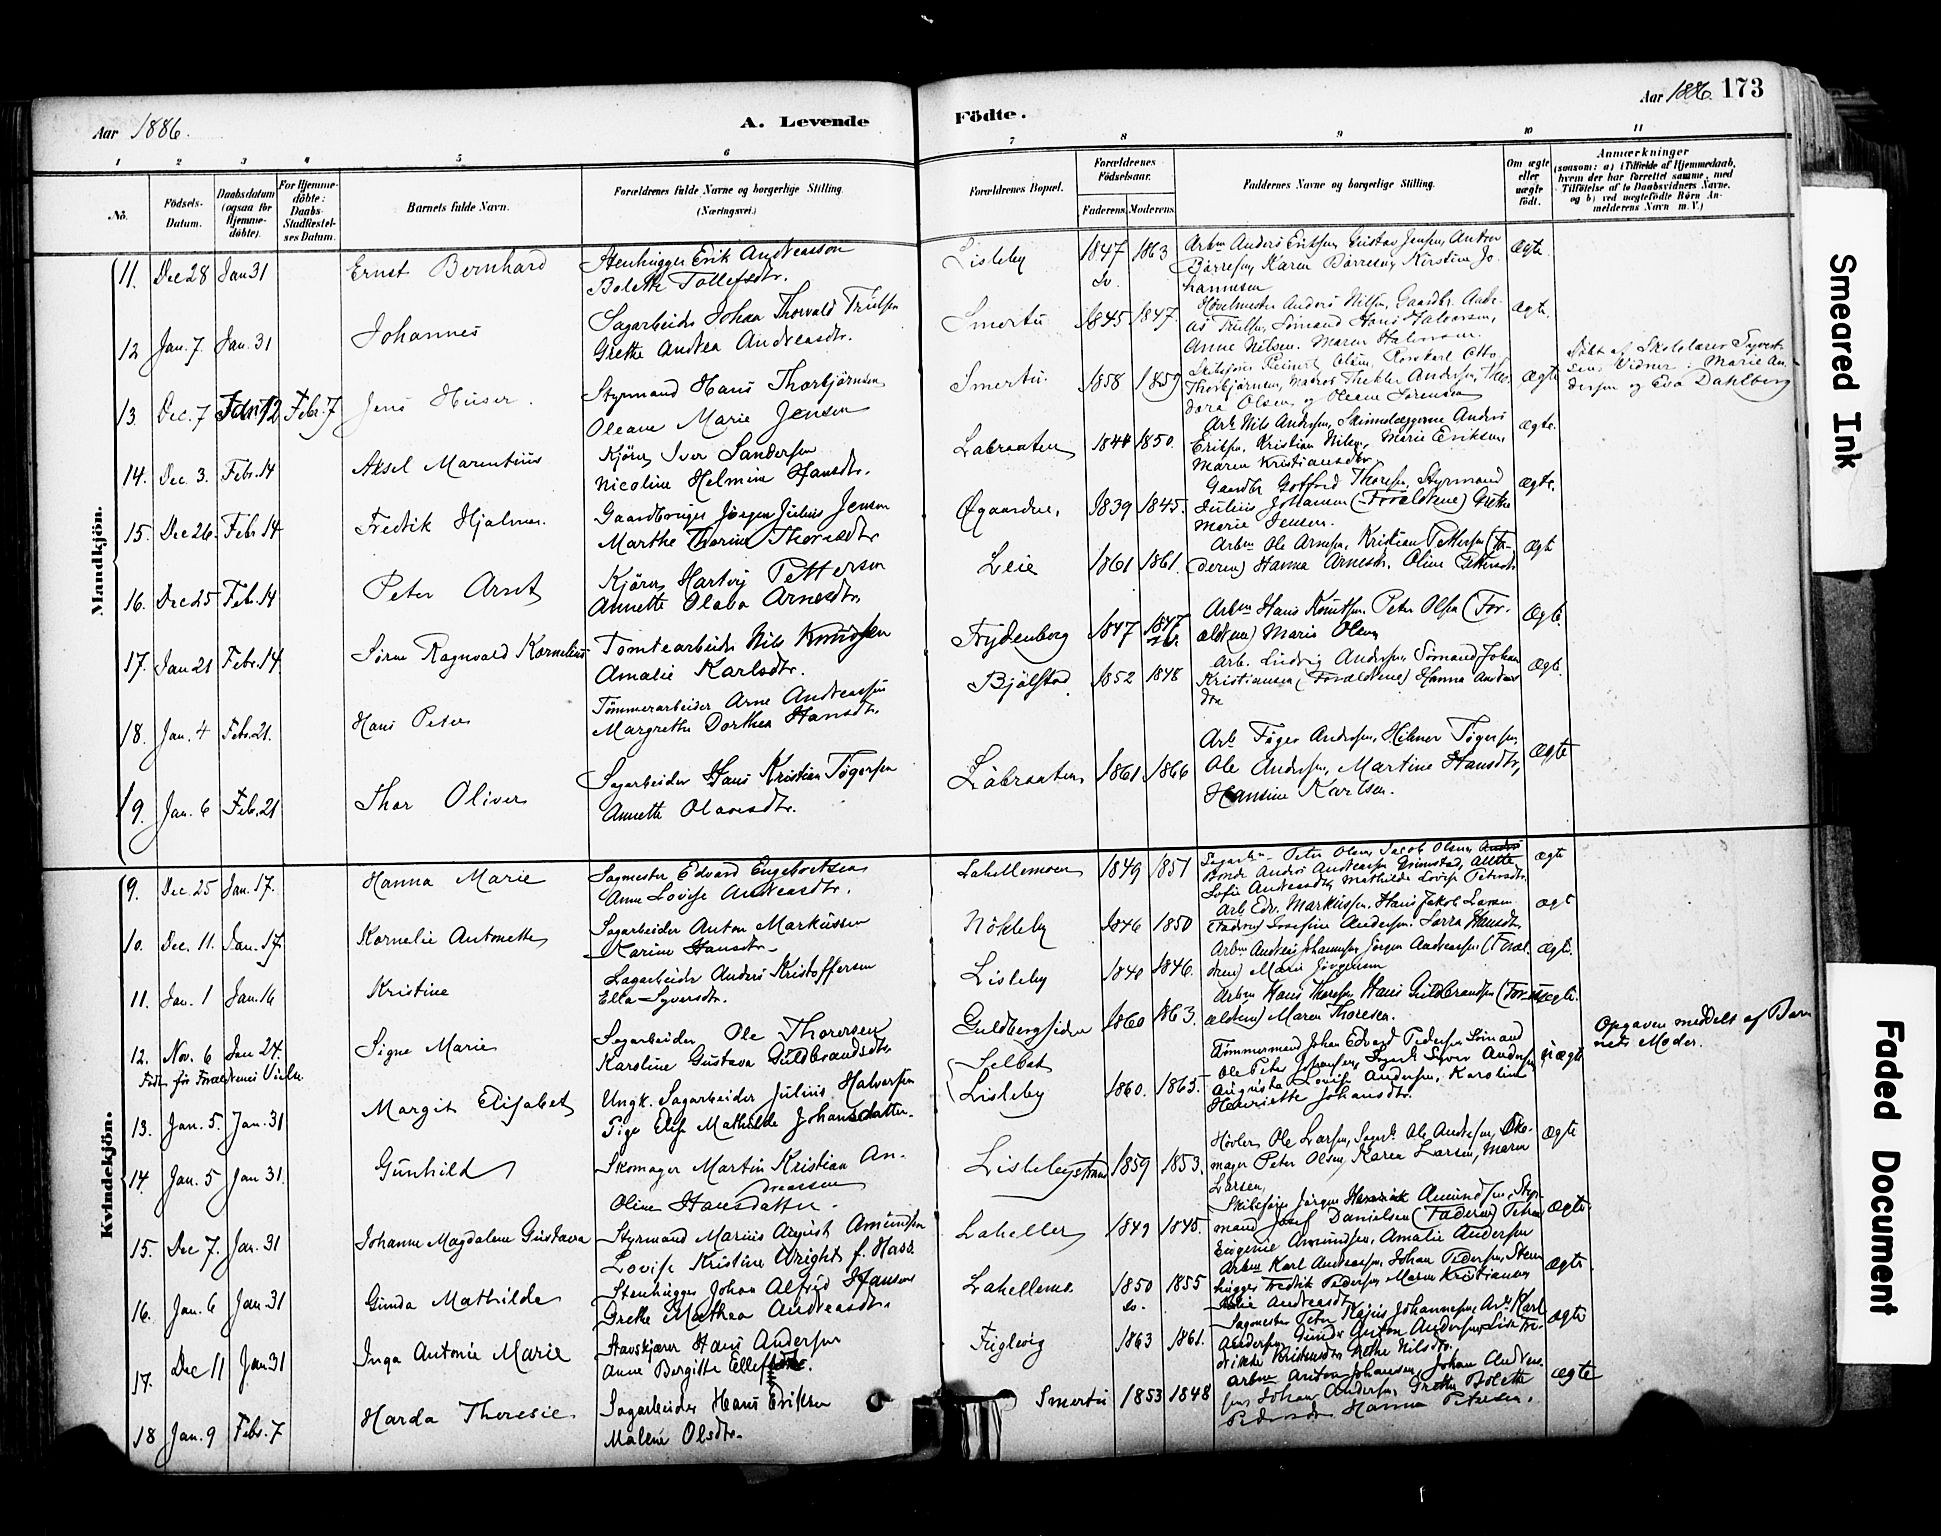 Aar 1886.
A. Levende
Födte.
Aar 1886. 173
1 2 3 4 5 6 7 8 9 10 11
No.
Födsels-Datum.
Daabsdatum (ogsaa for Hjemme-döbte).
For Hjemme-döbte: Daabs-Stadfæstel-ses Datum.
Barnets fulde Navn.
Forældrenes fulde Navne og borgerlige Stilling.
(Næringsvei.)
Forældrenes Bopæl.
Forældrenes Födselsaar.
Faderens. Moderens.
Faddernes Navne og borgerlige Stilling.
Om ægte eller uægte födt.
Anmærkninger
(saasom: a) i Tilfælde af Hjemmedaab,
hvem der har forrettet samme, med
Tilföielse af to Daabsvidners Navne,
og b) ved uægtefödte Börn An-
melderens Navn m. V.)
Mandkjön.
11. Dec 28 Jan 31 Ernst Bernhard
Stenhugger Erik Andreasson
Bolette Tollefsdtr.
Lisleby 1847 1863
Arbm Anders Eriksen, Gustav Jensen, Anton
Børresen, Karen Børresen, Kirstine Jo-
hannesen
Ægte.
12 Jan. 7. Jan. 31 Johannes
Sagarbeider Johan Thorvald Trulsen
Grethe Andrea Andreasdtr.
Smertu 1845 1847.
Høvelmester Anders Nilsen, Gaardbr. Andre-
as Trulsen, Sømand Hans Halvorsen,
Anne Nilsen. Maren Halvorsen.
Ægte.
13. Dec. 7 12 Febr. 7 Jens Huser.
Styrmand Hans Thorbjørnsen
Oleane Marie Jensen
Smertu. 1858 1859
Thorbjørnsen, Matros Thekler Andersen, Theo-
dora Olsen og Oleane Sørensen
Ægte
Døbt af Skolelærer Syvert-
sen. Vidner: Marie An-
dersen og Eva Dahlberg
14. Dec. 3. Febr. 14 Aksel Marentius
Kjører Iver Sandersen
Nicoline Helmine Hansdtr.
Labraaten 1844 1850.
Arb Nils Andersen, Skinnelæggerne Anders
Eriksen, Kristian Nilsen, Marie Eriksen,
Maren Kristiansdtr.
Ægte.
15. Dec 26. Febr 14 Fredrik Hjalmar.
Gaardbruger Jørgen Julius Jensen
Marthe Thorine Thorsdtr
Øgaarden, 1839 1845.
Gaardbr Gotfred Thorsen, Styrmand
Julius Johansen (Forældrene) Grethe
Marie Jensen.
Ægte.
16. Dec 25 Feb. 14 Peter Arnt
Kjører Hartvig Pettersen
Annette Olava Arnesdtr
Leie 1861 1861.
Arbm Ole Arnesen, Kristian Pettersen (Fa-
deren) Hanna Arnesdtr, Oline Pettersdtr
Ægte
17. Jan 21 Febr. 14. Sørine Ragnvald Kornelius
Tomtearbeider Nils Knudsen
Amalie Karlsdtr.
Frydenborg 1847 1847
Arbm Hans Knutsen, Peter Olsen (For-
ældrene) Marie Olsen
Ægte.
18. Jan. 4 Febr. 21. Hans Peter
Tømmerarbeider Arne Andreassen
Margrethe Dorthea Hansdtr.
Bjølstad. 1852 1848
Arb. Ludvig Andersen, Sømand Johan
Kristiansen (Forældrene) Hanna Anders
dtr
Ægte.
19. Jan. 6 Feb. 21 Thor Oliver
Sagarbeider Hans Kristian Tøgersen
Annette Olavesdtr.
Labraaten 1861 1866
Arb Tøger Andersen, Hilmer Tøgersen,
Ole Andersen, Martine Hansdtr,
Hansine Karlsen.
Ægte
Kvindekjön.
9. Dec. 25 Jan. 17. Hanna Marie
Sagmester Edvard Engebretsen
Anne Lovise Andreasdtr.
Lahellemoen 1849 1851
Peter Olsen, Jacob Olsen, Anders
Anders Andreasen Grimstad,
Sofie Andreasdtr, Mathilde Lovise Petersdtr
Ægte
10. Dec. 11. Jan. 17. Kornelie Antonette
Sagarbeider Anton Markussen
Karine Hansdtr.
Nökleby 1846 1850
Arb Edv. Markussen, Hans Jakob Larsen
(Faderen) Josefine Andersen. Sørra Hansdtr
Ægt
11. Jan. 1 Jan. 16 Kristine
Sagarbeider Anders Kristoffersen
Ella Syversdtr.
Lisleby 1840 1846.
Arbm Andreas Johannesen, Jørgen Andreassen (Foræl-
drene) Marie Jørgensen
Ægte.
12. Nov. 6 Jan 24. Signe Marie
Født før Forældrenes Vielse
Sagarbeider Ole Thoresen
Karoline Gustava Guldbrandsdtr
Guldbergsiden 1860 1863.
Arbm Hans Thoresen, Hans Guldbrandsen (For-
ældrene) Maren Thoresen.
ægte.
13. Jan. 5. Jan. 31 Margit Elisabet
Ungk. Sagarbeider Julius Halvorsen
Pige Elise Mathilde Johansdatter.
Selbak
Lisleby 1860. 1865.
Tømmermand Johan Edvard Pedersen, Sømand
Ole Peter Johansen, Sagarb Syver Andersen
Augusta Lovise Andersen, Karoline
Henriette Johansdtr.
uægte
Opgaven meddelt af Bar-
nets Moder.
14. Jan. 5 Jan 31. Gunhild
Skomager Martin Kristian An-
dreassen
Oline Hansdatter.
Lislebystrand 1859 1853.
Høvler Ole Larsen, Sagarb. Ole Andresen, Sko-
mager Peter Olsen, Karen Larsen, Maren
Larsen,
Ægte
15. Dec 7. Jan. 31 Johanne Magdalene Gustava
Styrmand Marius August Amundsen
Lovise Kristine Wright f. Hass
Laheller 1849 1845.
Jørgen Henrik Amundsen, Styr-
mand Josef Danielsen (Faderen) Petra
Eugenie Amundsen, Amalie Andersen
Ægte.
16. Jan. 6 Jan. 31 Gunda Mathilde
Stenhugger Johan Alfred Hansen
Grethe Mathea Andreasdtr.
Lahellemo. 1850 1855
Arbm Karl Andreasen, Johan Pedersen, Sten-
hugger Fredrik Pedersen, Maren Kristiansen
Andreasdtr
Ægte
17. Dec 11 Jan 31 Inga Antonie Marie
Stavskjærer Hans Andersen
Anne Bergitte
Fuglevig 1863 1861.
Sagmester Peter Johannesen, Arb. Karl
Andersen, Gunder Anton Andersen, Lise
Kristensdtr, Grethe Nilsdtr.
Ægte
18 Jan. 9 Febr. 7 Harda Theresie
Sagarbeider Hans Eriksen
Malene Olsdtr.
Smertu 1853 1848
Arbm Anton Johansen, Johan Andrea-
sen, Johan Andersen, Grethe Bolette
Pedersdtr Hanna Petersen.
Ægte
Smeared Ink
Faded Document